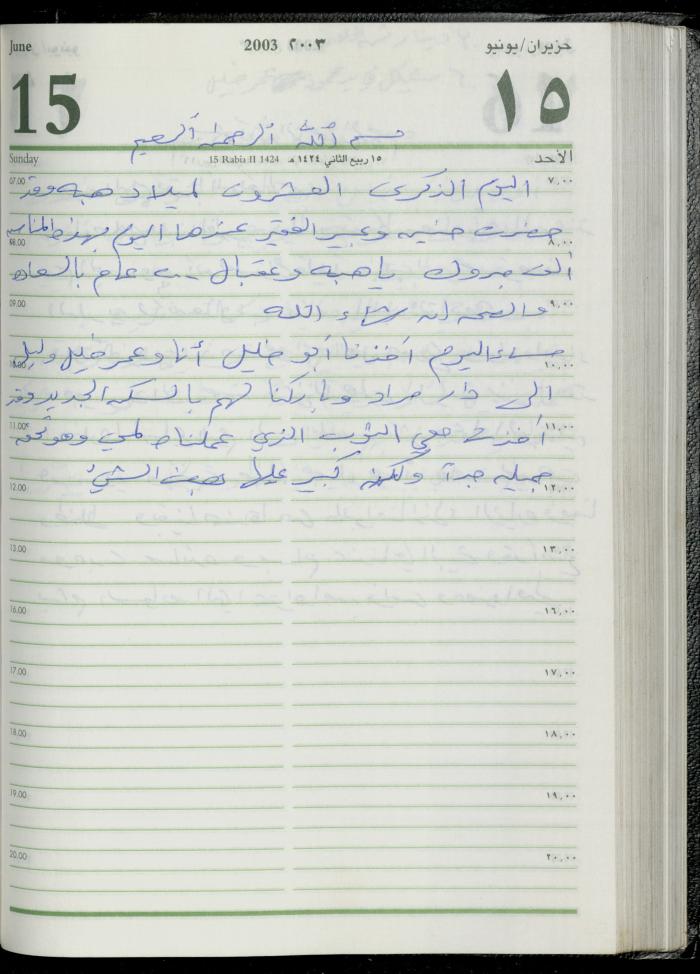 June 2003 ٢٠٠٣ حزيران/يونيو
15 ١٥
بسم الله الرحمن الرحيم
Sunday 15 Rabia II 1424 ١٥ ربيع الثاني ١٤٢٤ هـ الأحد
07.00 اليوم الذكرى العشرون لميلاد هبه وقد ٧,٠٠
حضرت حنينه وعبير الفقير عندها اليوم بهذه المناسبه
08.00 ٨,٠٠
ألف مبروك يا هبه وعقبال عام بالسعاده
09.00 والصحه ان شاء الله ٩,٠٠
مساء اليوم أخذنا أبو خليل أنا وعمر خليل وليلى
10.00 ١٠,٠٠
الى دار مراد وباركنا لهم بالسكن الجديد وقد
11.00 أخذت معي الثوب الذي عملناه لمي وهو تحفه ١١,٠٠
جميله جداً ولكن كبير عليها بعض الشيء
12.00 ١٢,٠٠
13.00 ١٣,٠٠
16.00 ١٦,٠٠
17.00 ١٧,٠٠
18.00 ١٨,٠٠
19.00 ١٩,٠٠
20.00 ٢٠,٠٠